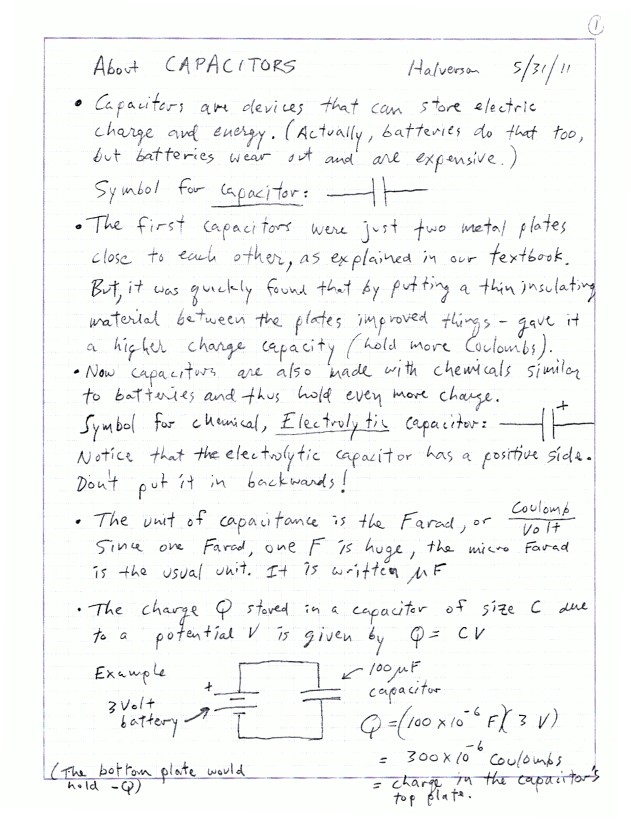 1
About CAPACITORS Halverson 5/31/11
• Capacitors are devices that can store electric
charge and energy. (Actually, batteries do that too,
but batteries wear out and are expensive.)
Symbol for capacitor:
• The first capacitors were just two metal plates
close to each other, as explained in our textbook.
But, it was quickly found that by putting a thin insulating
material between the plates improved things - gave it
a higher charge capacity (hold more Coulombs).
• Now capacitors are also made with chemicals similar
to batteries and thus hold even more charge.
Symbol for chemical, Electrolytic capacitor: +
Notice that the electrolytic capacitor has a positive side.
Don't put it in backwards!
• The unit of capacitance is the Farad, or Coulomb/Volt
Since one Farad, one F is huge, the micro Farad
is the usual unit. It is written μF
• The charge Q stored in a capacitor of size C due
to a potential V is given by Q = CV
Example
3 Volt
battery
+
100 μF
capacitor
Q = (100 x 10⁻⁶ F)(3 V)
= 300 x 10⁻⁶ Coulombs
= charge in the capacitor's
top plate.
(The bottom plate would
hold -Q)